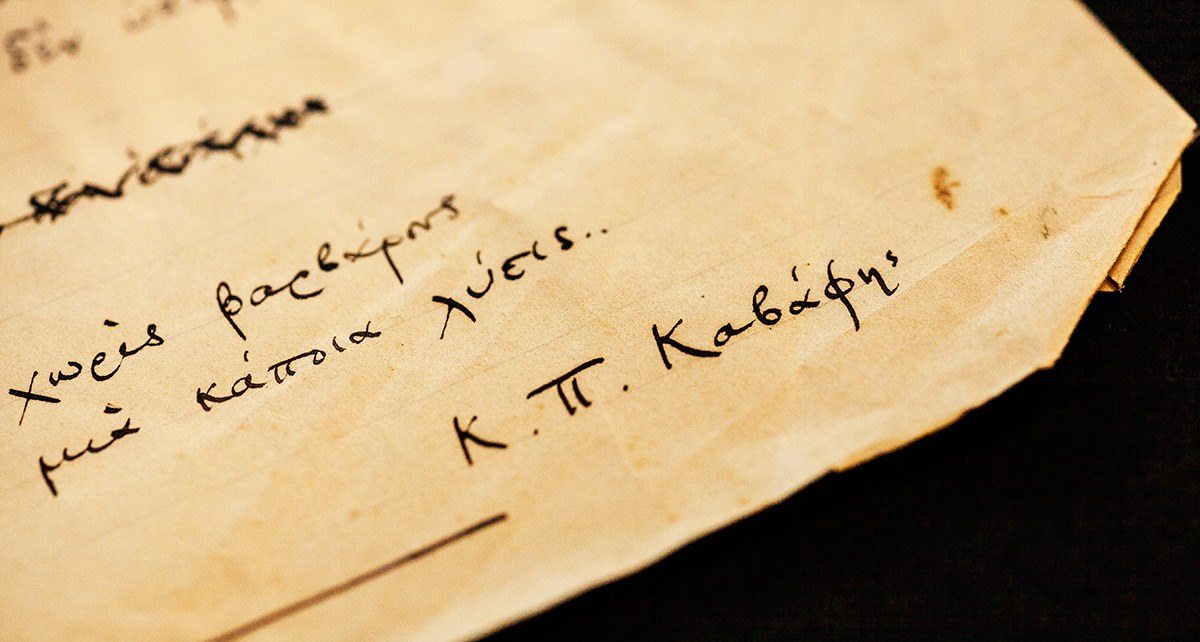 χωρὶς βαρβάρους
μιὰ κάποια λύσις..
Κ. Π. Καβάφης